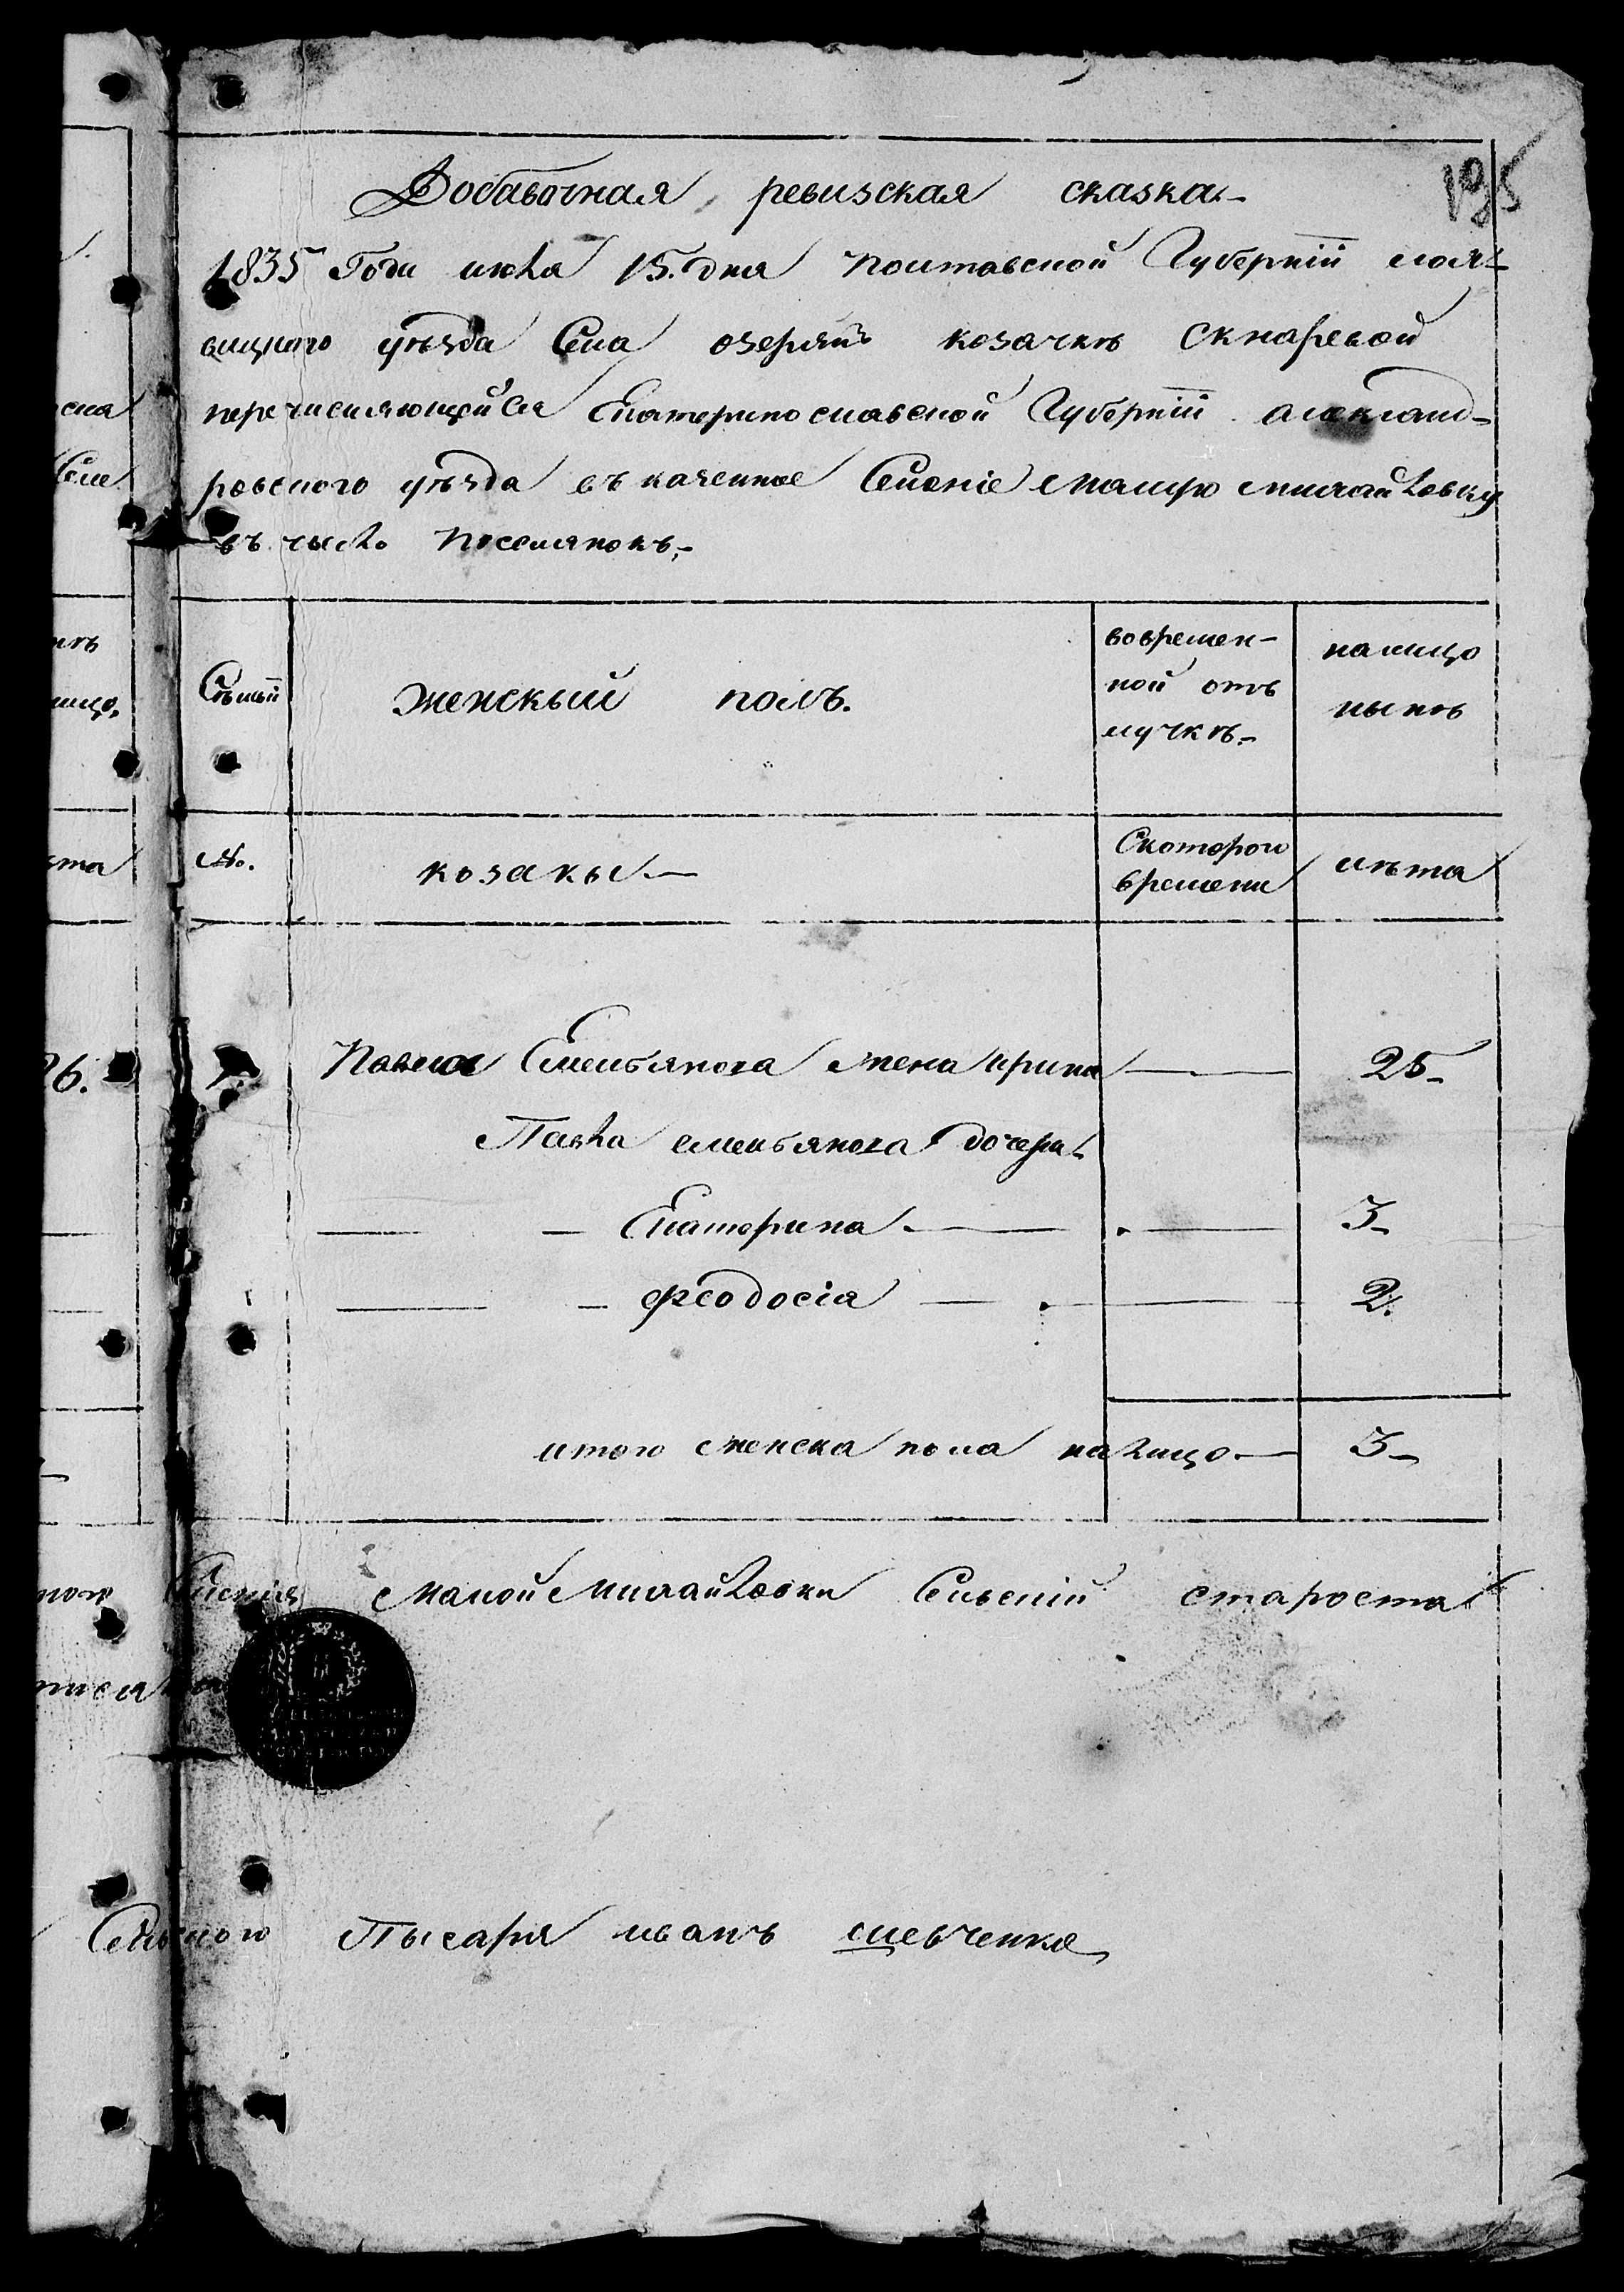 195
Добавочная ревизская сказка.-
1835 Года июля 15. дня Полтавской Губерніи
уѣзда Села озерянъ козачкѣ Скнаревой
перечисляющейся Екатеринославской Губерніи александ-
ровского уѣзда въ казенное Селеніе малую михайловку
въ число поселянокъ,-
Семьи
женскый полъ.
вовремен-
ной отъ
лучкѣ.-
налицо
нынѣ
№.
козакы.—
Скоторого
времени
лѣта
Павла Емельянова жена ирина — 25-
Павла емельянова дочери
— — Екатерина — 3-
— — феодосія — 2.
итого женска пола налицо.— 3-
Селенія малой михайловки Сельскій староста
Сельского Пысаря иванъ шевченко
26.